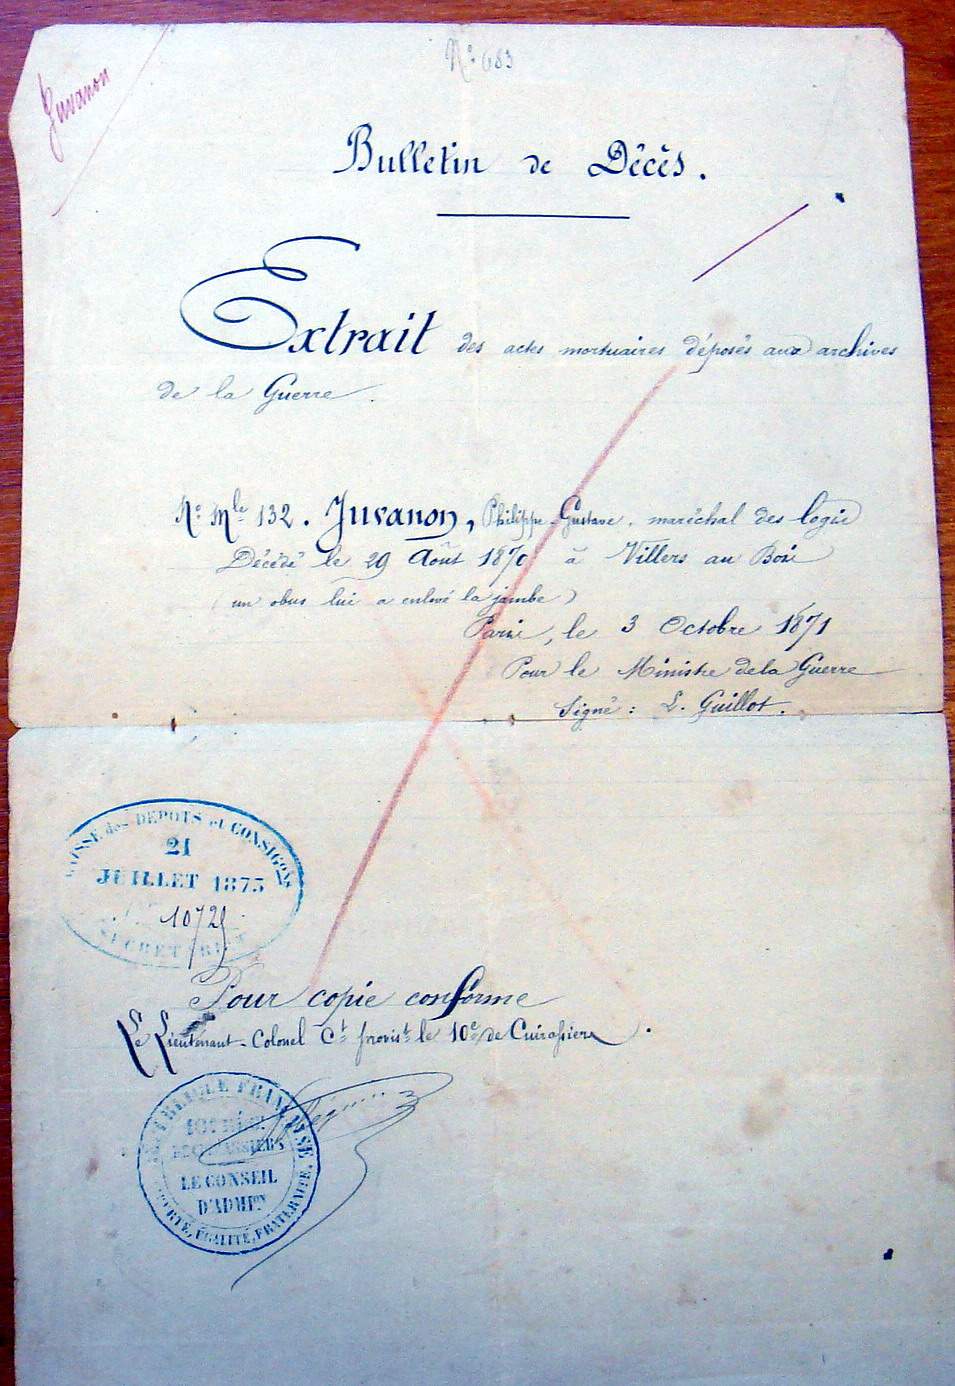 Juvanon
N° 683
Bulletin de Décès.
Extrait des actes mortuaires déposés aux archives
de la Guerre.
N° Mle 132. Juvanon, Philippe-Gustave, maréchal des logis
Décédé le 29 Août 1870 à Villers au Bois
(un obus lui a enlevé la jambe)
Paris, le 3 Octobre 1871
Pour le Ministre de la Guerre
Signé: L. Guillot.
CAISSE des DEPOTS et CONSIGONS
21
JUILLET 1875
SECRETARIAT
Pour copie conforme
Le Lieutenant-Colonel Ct provist le 10e de Cuirassiers.
REPUBLIQUE FRANÇAISE
10E RÉGT
DE CUIRASSIERS
LE CONSEIL
D'ADMION
LIBERTE, EGALITE, FRATERNITE.